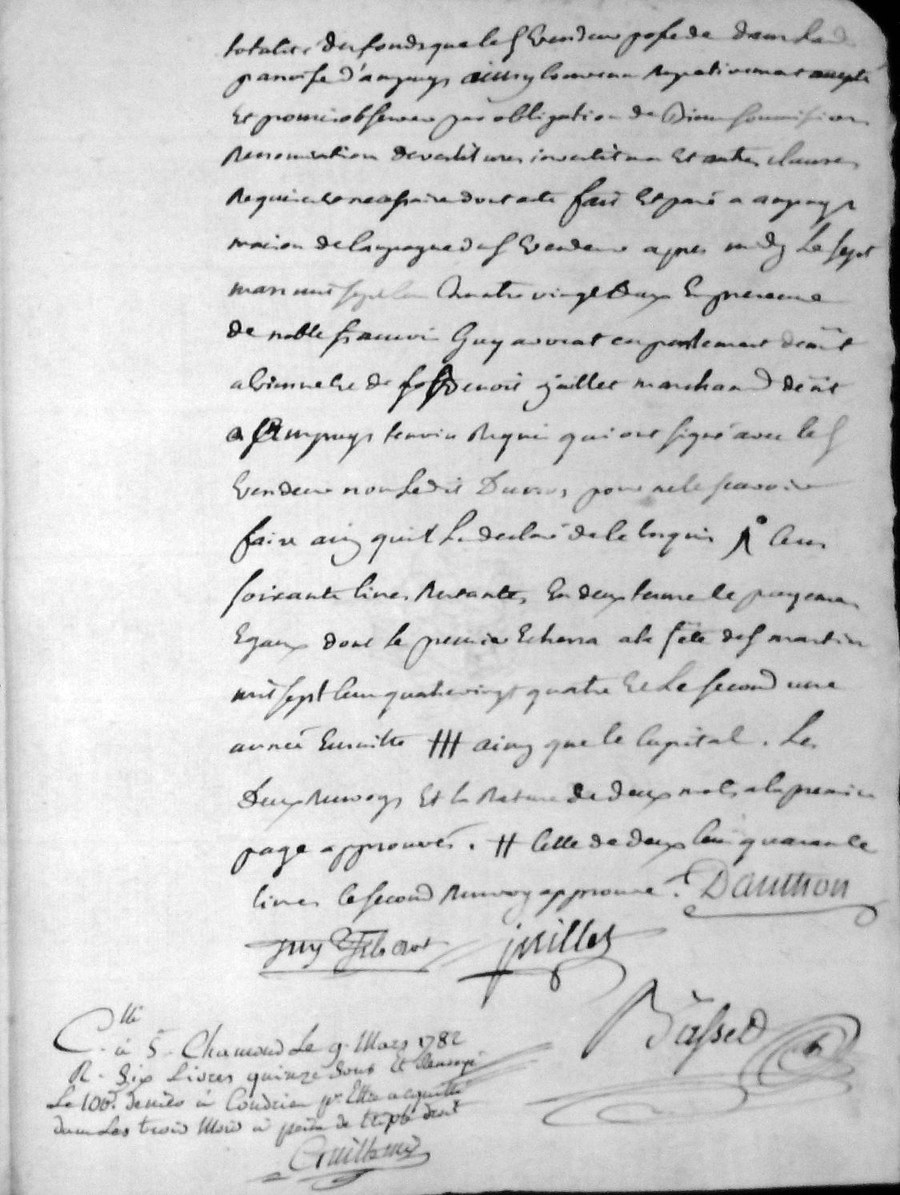 totalité des fonds que le S vendeur possede dans lad
paroisse d'ampuys ainsy convenu respectivement accepté
Et promis observer par obligation de Biens soumissions
Renonciation devestitures investiture Et autres clauses
Requises et necessaires dont acte fait Et passé a ampuys
maison de campagne du S vendeur apres midy Le sept
mars mil sept cent quatre vingt deux En presence
de noble francois Guy avocat en parlement demt
a vienne et de S Benoit juillet marchand demt
a ampuys temoins Requis qui ont signé avec le S
vendeur non Ledit Duvos pour ne le scavoir
faire ainsy quil La declaré de ce Enquis Ro Cens
soixante livres Restantes En deux termes et payemens
Egaux dont le premier Echerra a la fête de S martin
mil sept cent quatrevingt quatre Et Le second une
année Ensuitte ### ainsy que le Capital. Les
Deux Renvoys Et la Rature de deux mots a la premiere
page approuvés. # celle de deux cent quarante
livres le second Renvoy approuvé. Dauthon
Guy juillet
Basset
Clle
à St Chamond Le 9 Mars 1782
R. Six Livres quinze sous et Renvoyé
Le 100e. denier à Condrieu pr Etre acquitté
dans Les trois Mois à peine de triple droit
Guillemin